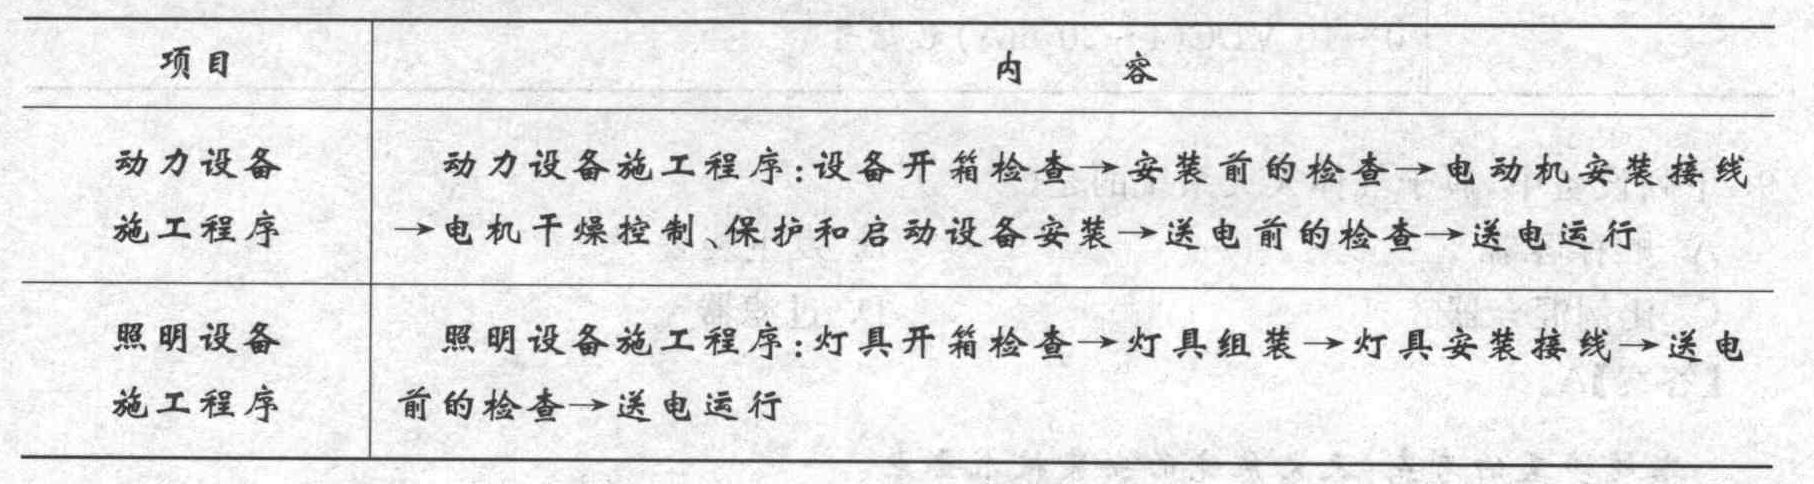 项目 内 容
动力设备 动力设备施工程序:设备开箱检查→安装前的检查→电动机安装接线
施工程序 →电机干燥控制、保护和启动设备安装→送电前的检查→送电运行
照明设备 照明设备施工程序:灯具开箱检查→灯具组装→灯具安装接线→送电
施工程序 前的检查→送电运行